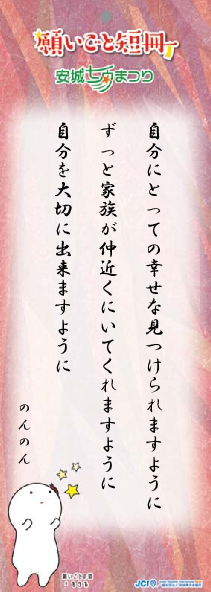 願いごと短冊
安城七夕まつり
自分にとっての幸せな見つけられますように
ずっと家族が仲近くにいてくれますように
自分を大切に出来ますように
のんのん
願いごと短冊
JCI